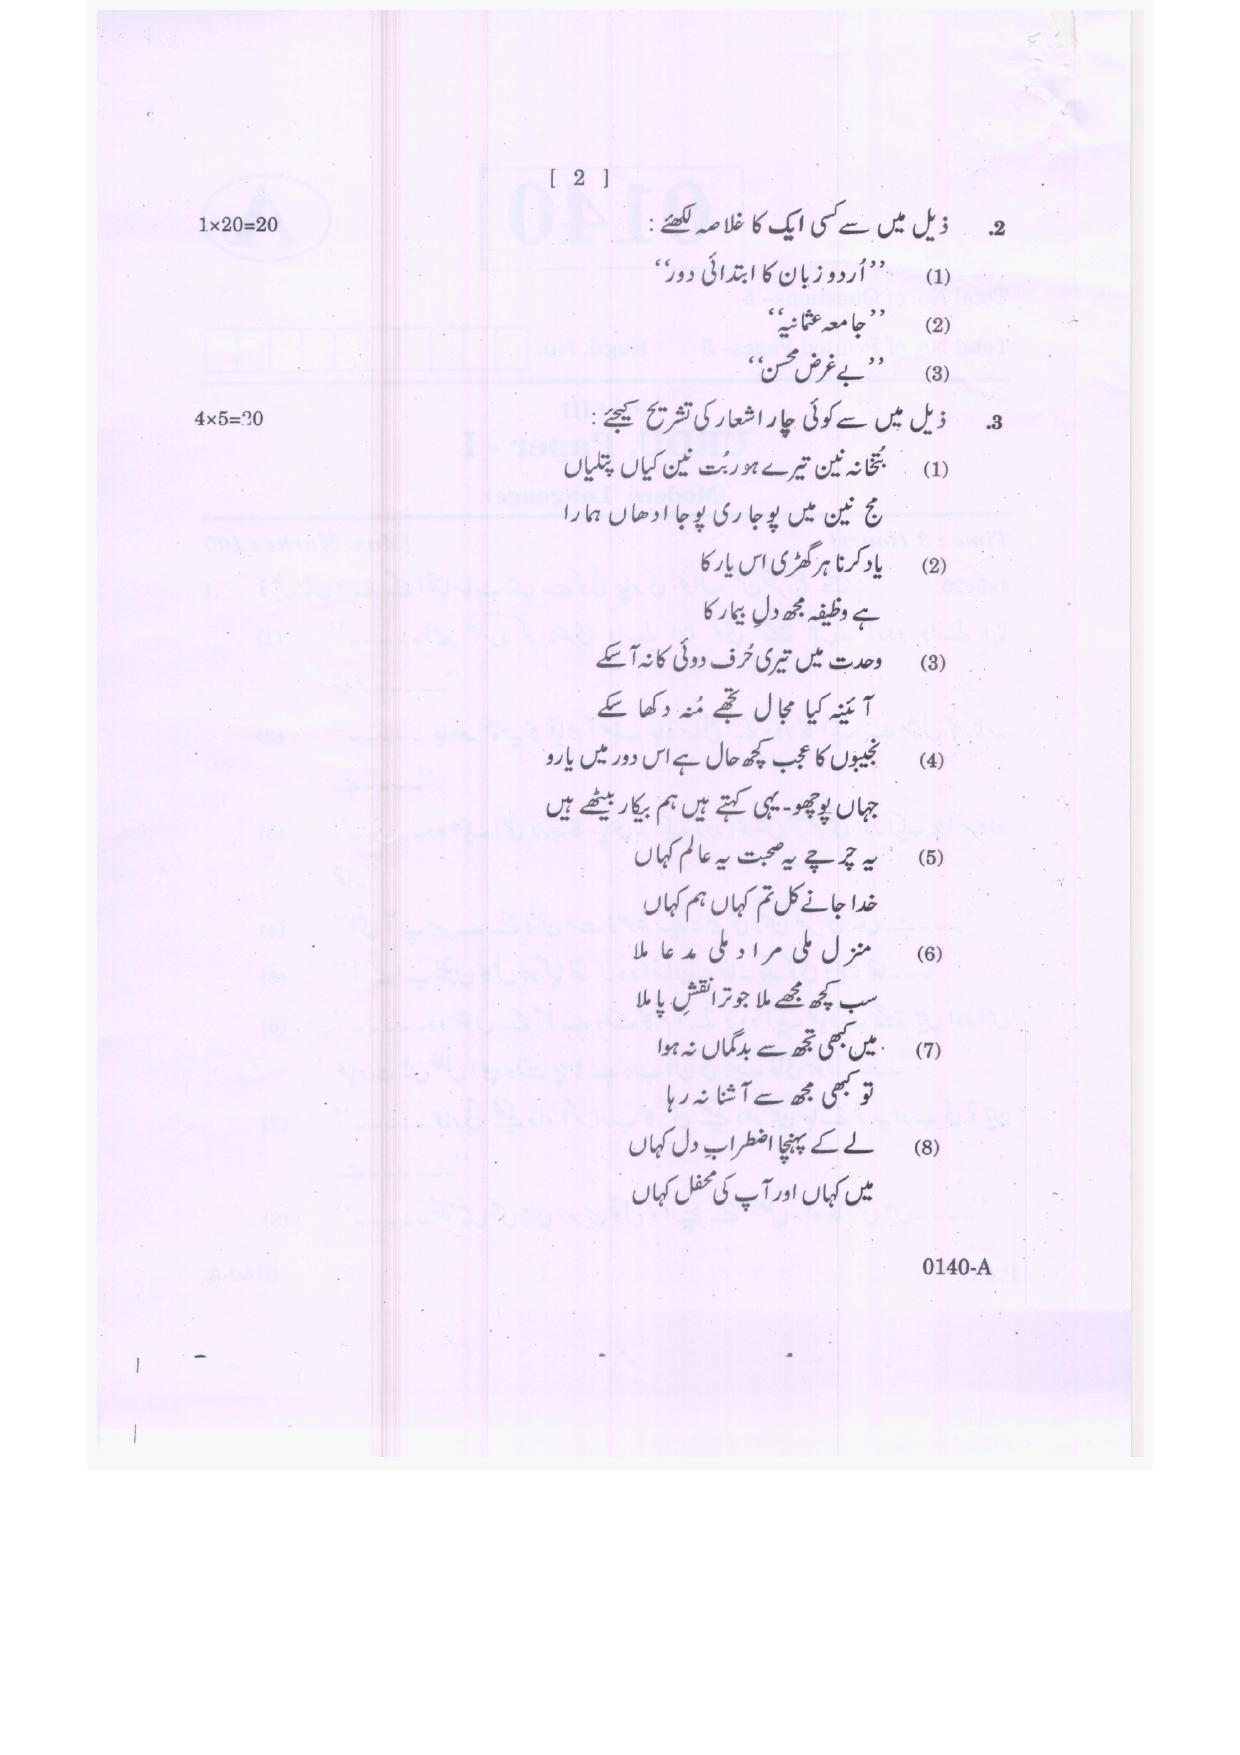 [ 2 ]
2. ذیل میں سے کسی ایک کا خلاصہ لکھئے : 1×20=20
(1) ’’اُردو زبان کا ابتدائی دور‘‘
(2) ’’جامعہ عثمانیہ‘‘
(3) ’’بے غرض محسن‘‘
3. ذیل میں سے کوئی چار اشعار کی تشریح کیجئے : 4×5=20
(1) بُتخانہ نین تیرے ہور بُت نین کیاں پتلیاں
مج نین میں پوجاری پوجا ادھاں ہمارا
(2) یاد کرنا ہر گھڑی اس یار کا
ہے وظیفہ مجھ دلِ بیمار کا
(3) وحدت میں تیری حُرف دوئی کا نہ آ سکے
آئینہ کیا مجال تجھے مُنہ دکھا سکے
(4) نجیبوں کا عجب کچھ حال ہے اس دور میں یارو
جہاں پوچھو۔ یہی کہتے ہیں ہم بیکار بیٹھے ہیں
(5) یہ چرچے یہ صحبت یہ عالم کہاں
خدا جانے کل تم کہاں ہم کہاں
(6) منزل ملی مراد ملی مدعا ملا
سب کچھ مجھے ملا جو ترا نقشِ پا ملا
(7) میں کبھی تجھ سے بدگماں نہ ہوا
تو کبھی مجھ سے آشنا نہ رہا
(8) لے کے پہنچا اضطرابِ دل کہاں
میں کہاں اور آپ کی محفل کہاں
0140-A